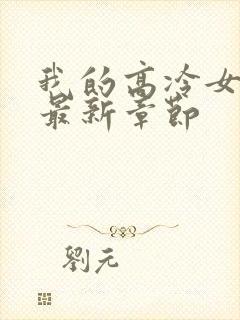 我的高冷女
最新章節
劉元